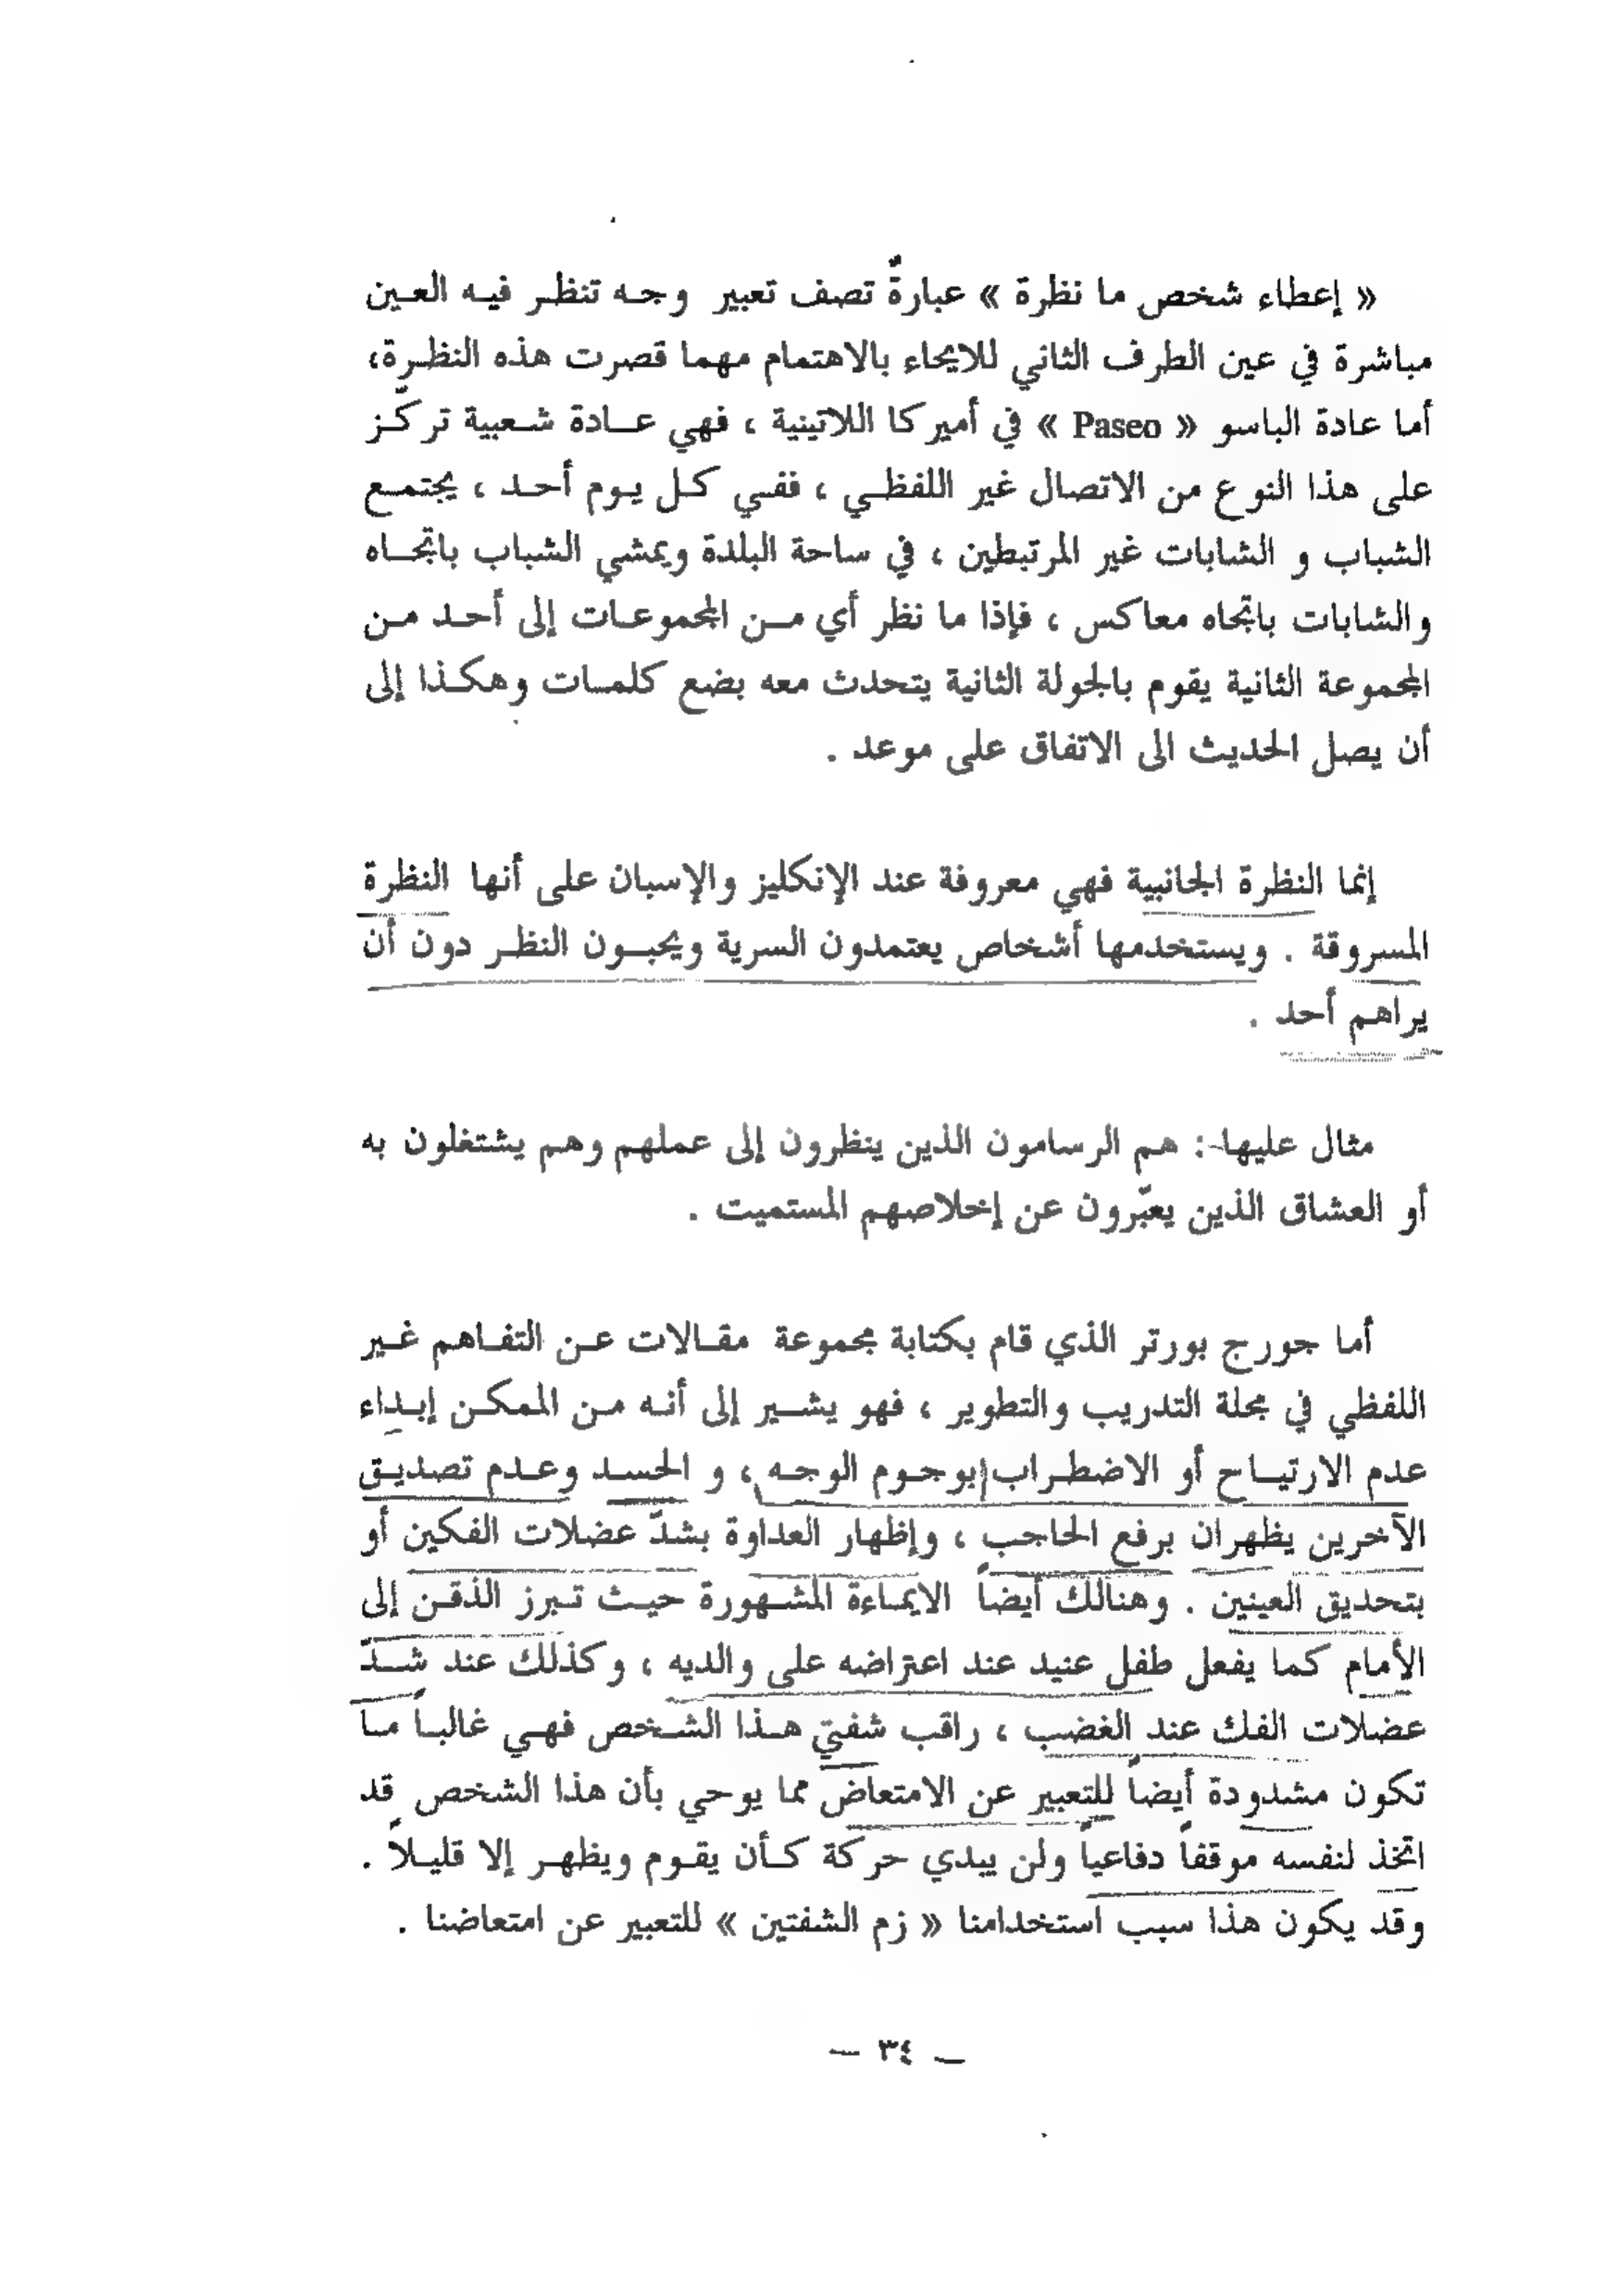 « إعطاء شخص ما نظرة » عبارةٌ تصف تعبير وجه تنظر فيه العين
مباشرة في عين الطرف الثاني للايحاء بالاهتمام مهما قصرت هذه النظرة،
أما عادة الباسو « Paseo » في أميركا اللاتينية ، فهي عادة شعبية تركّز
على هذا النوع من الاتصال غير اللفظي ، ففي كل يوم أحد ، يجتمع
الشباب و الشابات غير المرتبطين ، في ساحة البلدة ويمشي الشباب باتجاه
والشابات باتجاه معاكس ، فإذا ما نظر أي من المجموعات إلى أحد من
المجموعة الثانية يقوم بالجولة الثانية يتحدث معه بضع كلمات وهكذا إلى
أن يصل الحديث الى الاتفاق على موعد .
إنما النظرة الجانبية فهي معروفة عند الإنكليز والإسبان على أنها النظرة
المسروقة . ويستخدمها أشخاص يعتمدون السرية ويحبون النظر دون أن
يراهم أحد .
مثال عليها : هم الرسامون الذين ينظرون إلى عملهم وهم يشتغلون به
أو العشاق الذين يعبّرون عن إخلاصهم المستميت .
أما جورج بورتر الذي قام بكتابة مجموعة مقالات عن التفاهم غير
اللفظي في مجلة التدريب والتطوير ، فهو يشير إلى أنه من الممكن إبداء
عدم الارتياح أو الاضطراب بوجوم الوجه ، و الحسد وعدم تصديق
الآخرين يظهران برفع الحاجب ، وإظهار العداوة بشدّ عضلات الفكين أو
بتحديق العينين . وهنالك أيضاً الايماءة المشهورة حيث تبرز الذقن إلى
الأمام كما يفعل طفل عنيد عند اعتراضه على والديه ، وكذلك عند شدّ
عضلات الفك عند الغضب ، راقب شفتي هذا الشخص فهي غالباً ما
تكون مشدودة أيضاً للتعبير عن الامتعاض مما يوحي بأن هذا الشخص قد
اتخذ لنفسه موقفاً دفاعياً ولن يبدي حركة كأن يقوم ويظهر إلا قليلاً .
وقد يكون هذا سبب استخدامنا « زم الشفتين » للتعبير عن امتعاضنا .
— ٣٤ —